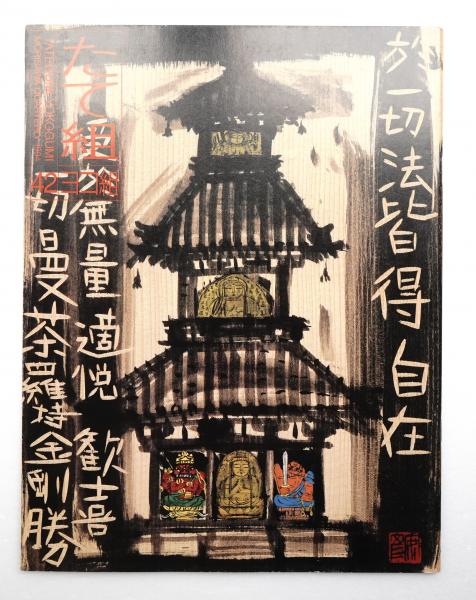 たて組
ヨコ組
42
於一切法皆得自在
於無量適悦歓喜
切曼荼羅持金剛勝